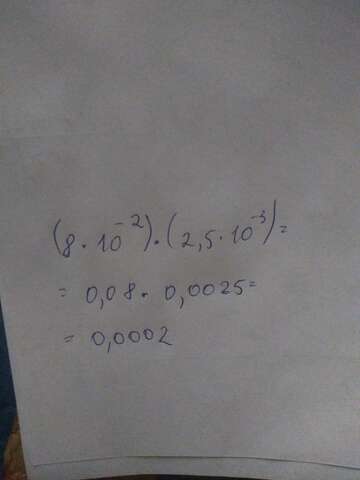 (8·10⁻²)·(2,5·10⁻³)=
= 0,08 · 0,0025=
= 0,0002